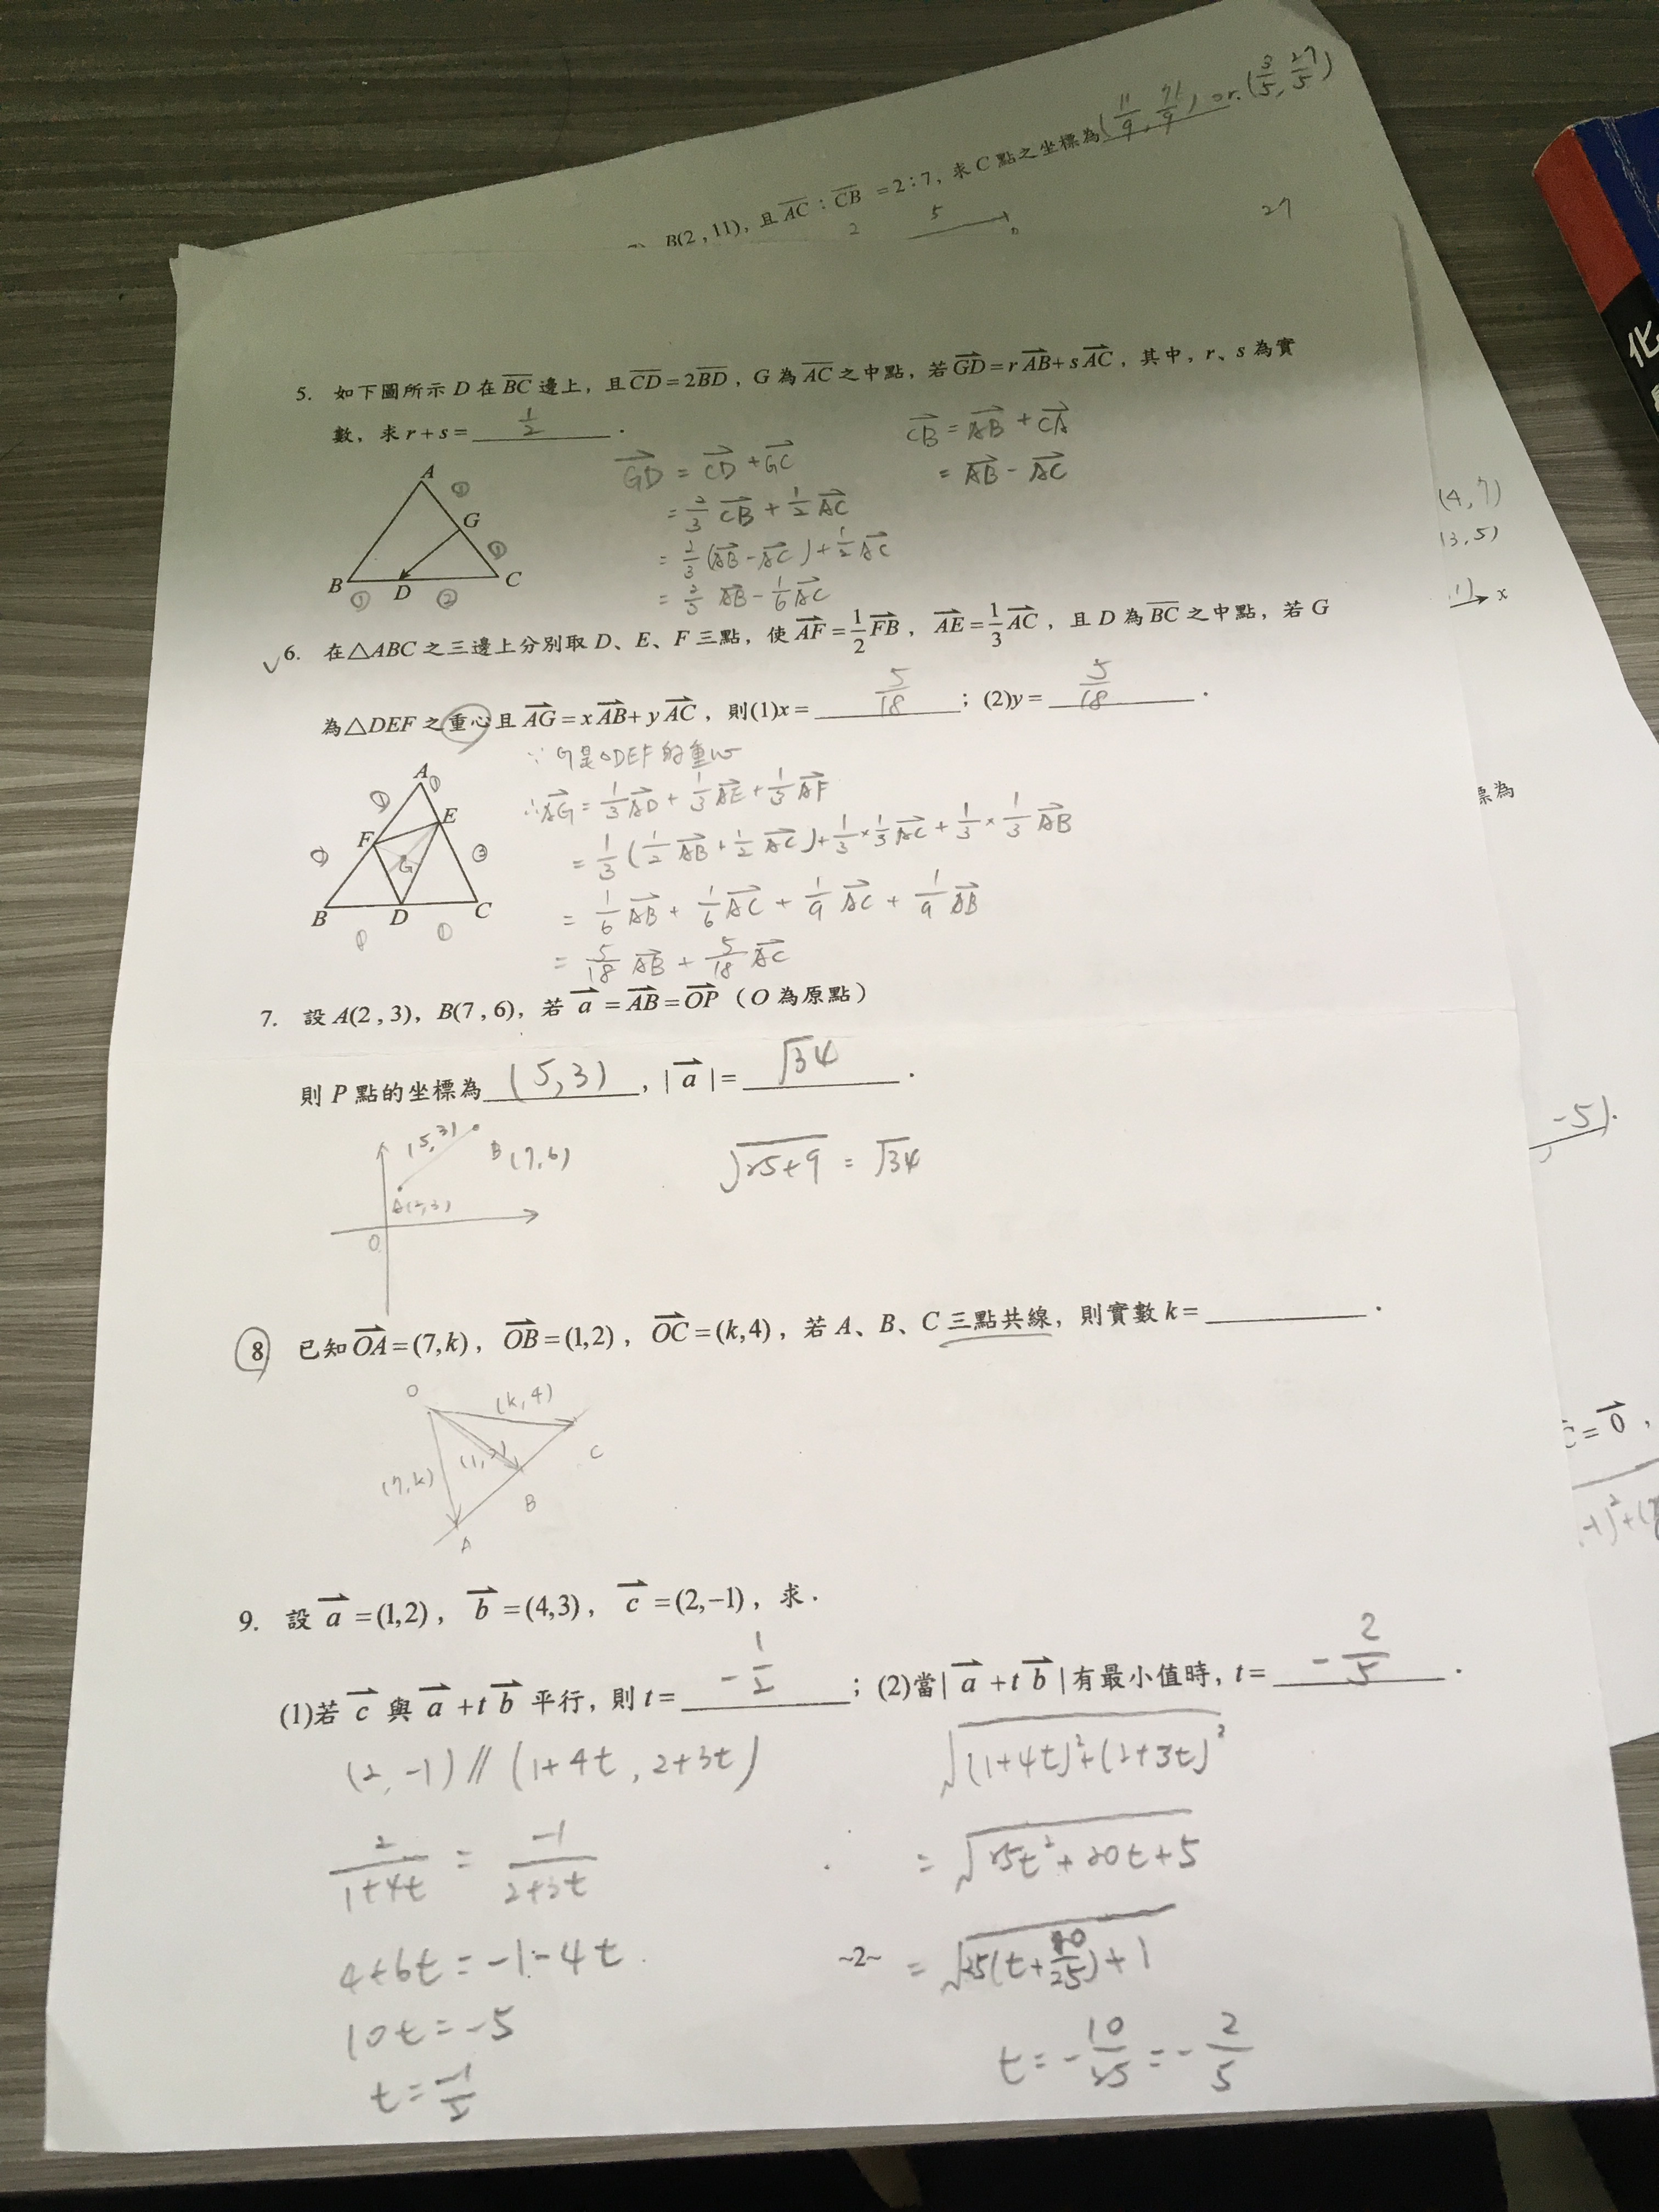 B(2,11), 且 AC : CB = 2:7, 求 C 點之坐標為 (11/9, 71/9) or (3/5, 27/5)
2 5
27
5. 如下圖所示 D 在 BC 邊上, 且 CD = 2BD, G 為 AC 之中點, 若 GD = rAB + sAC, 其中, r、s 為實
數, 求 r+s = 1/2 .
GD = CD + GC
= 2/3 CB + 1/2 AC
= 2/3 (AB - AC) + 1/2 AC
= 2/3 AB - 1/6 AC
CB = AB + CA
= AB - AC
A ① G ① B ① D ② C
6. 在△ABC 之三邊上分別取 D、E、F 三點, 使 AF = 1/2 FB, AE = 1/3 AC, 且 D 為 BC 之中點, 若 G
為△DEF 之重心且 AG = xAB + yAC, 則(1)x = 5/18 ; (2)y = 5/18 .
∵ G是△DEF的重心
∴ AG = 1/3 AD + 1/3 AE + 1/3 AF
= 1/3 (1/2 AB + 1/2 AC) + 1/3 × 1/3 AC + 1/3 × 1/3 AB
= 1/6 AB + 1/6 AC + 1/9 AC + 1/9 AB
= 5/18 AB + 5/18 AC
A ① ① E F G ② ③ B D C ① ①
7. 設 A(2,3), B(7,6), 若 a = AB = OP (O 為原點)
則 P 點的坐標為 (5,3) , |a| = √34 .
(5,3) B(7,6)
A(2,3)
O
√25+9 = √34
8 已知 OA = (7,k), OB = (1,2), OC = (k,4), 若 A、B、C 三點共線, 則實數 k = .
O (k,4)
(7,k) (1,2) C
B
A
9. 設 a = (1,2), b = (4,3), c = (2,-1), 求.
(1)若 c 與 a + t b 平行, 則 t = -1/2 ; (2)當| a + t b |有最小值時, t = -2/5 .
(2,-1) // (1+4t, 2+3t)
2/(1+4t) = -1/(2+3t)
4+6t = -1-4t
10t = -5
t = -1/2
√(1+4t)²+(2+3t)²
= √25t²+20t+5
= √25(t+10/25)+1
t = -10/25 = -2/5
~2~
(4,7)
(3,5)
x
標為
-5).
C = 0,
-1)²+(
化